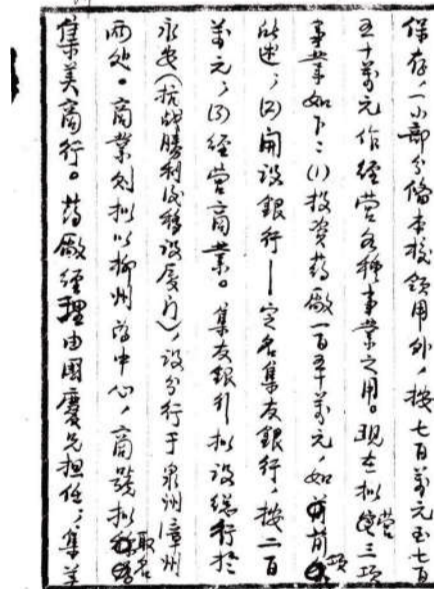 保存，一小部分备本校领用外，按七百万元至七百
五十万元作经营各种事业之用。现在拟营三项
事业如下：(1)投资药厰一百五十万元，如前项
所述；(2)開设銀行—定名集友銀行，按二百
万元；(3)经营商業。集友銀行拟设総行於
永安（抗战勝利后移设厦门），设分行于泉州漳州
两处。商業则拟以柳州为中心，商號拟取名
集美商行。药厰经理由國慶兄担任，集美